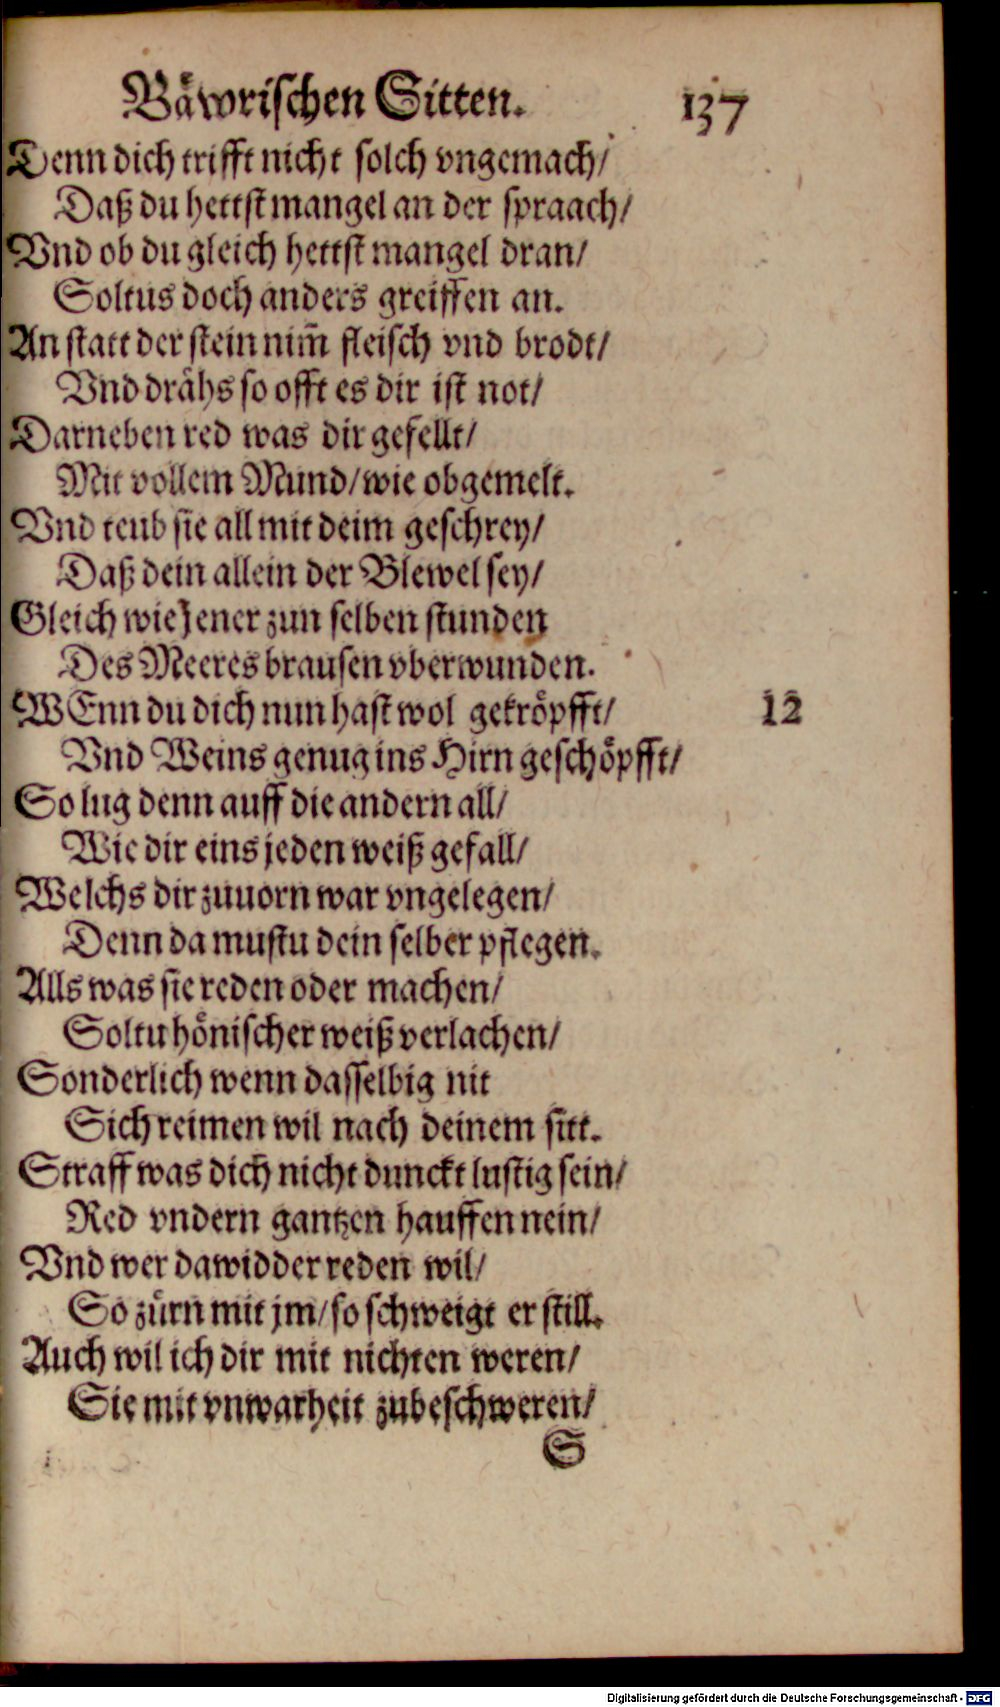 Bäwrischen Sitten. 137
Denn dich trifft nicht solch vngemach/
Daß du hettst mangel an der spraach/
Vnd ob du gleich hettst mangel dran/
Soltus doch anders greiffen an.
An statt der stein nim̃ fleisch vnd brodt/
Vnd drähs so offt es dir ist not/
Darneben red was dir gefellt/
Mit vollem Mund/wie obgemelt.
Vnd teub sie all mit deim geschrey/
Daß dein allein der Blewel sey/
Gleich wie Jener zun selben stunden
Des Meeres brausen vberwunden.
WEnn du dich nun hast wol gekröpfft/ 12
Vnd Weins genug ins Hirn geschöpfft/
So lug denn auff die andern all/
Wie dir eins jeden weiß gefall/
Welchs dir zuuorn war vngelegen/
Denn da mustu dein selber pflegen.
Alls was sie reden oder machen/
Soltu hönischer weiß verlachen/
Sonderlich wenn dasselbig nit
Sich reimen wil nach deinem sitt.
Straff was dich nicht dunckt lustig sein/
Red vndern gantzen hauffen nein/
Vnd wer dawidder reden wil/
So zürn mit jm/so schweigt er still.
Auch wil ich dir mit nichten weren/
Sie mit vnwarheit zubeschweren/
S
Digitalisierung gefördert durch die Deutsche Forschungsgemeinschaft - DFG